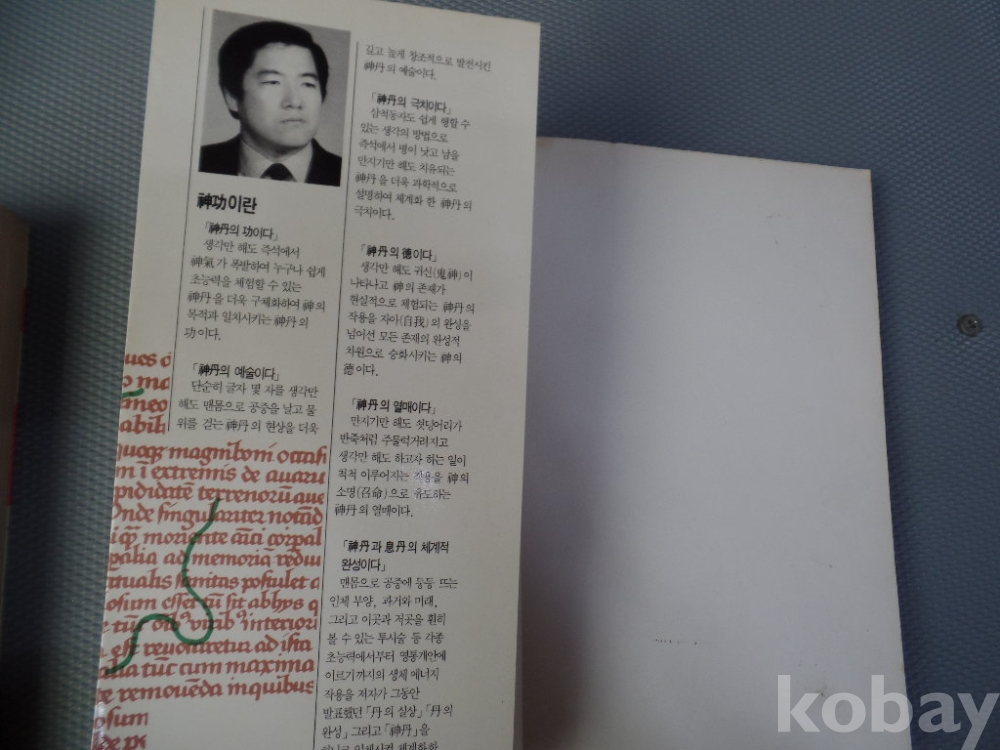 神功이란
「神丹의 功이다」
생각만 해도 즉석에서
神氣가 폭발하여 누구나 쉽게
초능력을 체험할 수 있는
神丹을 더욱 구체화하여 神의
목적과 일치시키는 神丹의
功이다.
「神丹의 예술이다」
단순히 글자 몇 자를 생각만
해도 맨몸으로 공중을 날고 물
위를 걷는 神丹의 현상을 더욱
깊고 높게 창조적으로 발전시킨
神丹의 예술이다.
「神丹의 극치이다」
삼척동자도 쉽게 행할 수
있는 생각의 방법으로
즉석에서 병이 낫고 남을
만지기만 해도 치유되는
神丹을 더욱 과학적으로
설명하여 체계화 한 神丹의
극치이다.
「神丹의 德이다」
생각만 해도 귀신(鬼神)이
나타나고 神의 존재가
현실적으로 체험되는 神丹의
작용을 자아(自我)의 완성을
넘어선 모든 존재의 완성적
차원으로 승화시키는 神의
德이다.
「神丹의 열매이다」
만지기만 해도 쇳덩어리가
반죽처럼 주물럭거려지고
생각만 해도 하고자 하는 일이
척척 이루어지는 작용을 神의
소명(召命)으로 유도하는
神丹의 열매이다.
「神丹과 息丹의 체계적
완성이다」
맨몸으로 공중에 둥둥 뜨는
인체 부양, 과거와 미래,
그리고 이곳과 저곳을 훤히
볼 수 있는 투시술 등 각종
초능력에서부터 영통개안에
이르기까지의 생체 에너지
작용을 저자가 그동안
발표했던 「丹의 실상」「丹의
완성」 그리고 「神丹」을
ues
o ma
meo
abib
quoqz magnibom occas
m i extremis de auaru
terrenorū aue
Onde singulariter notād
moriente
palia ad memoriā
sanitas postulet a
osum esset cū sit abhys q
interiori
cum maxima
remouēda inquibus
osum
kobay